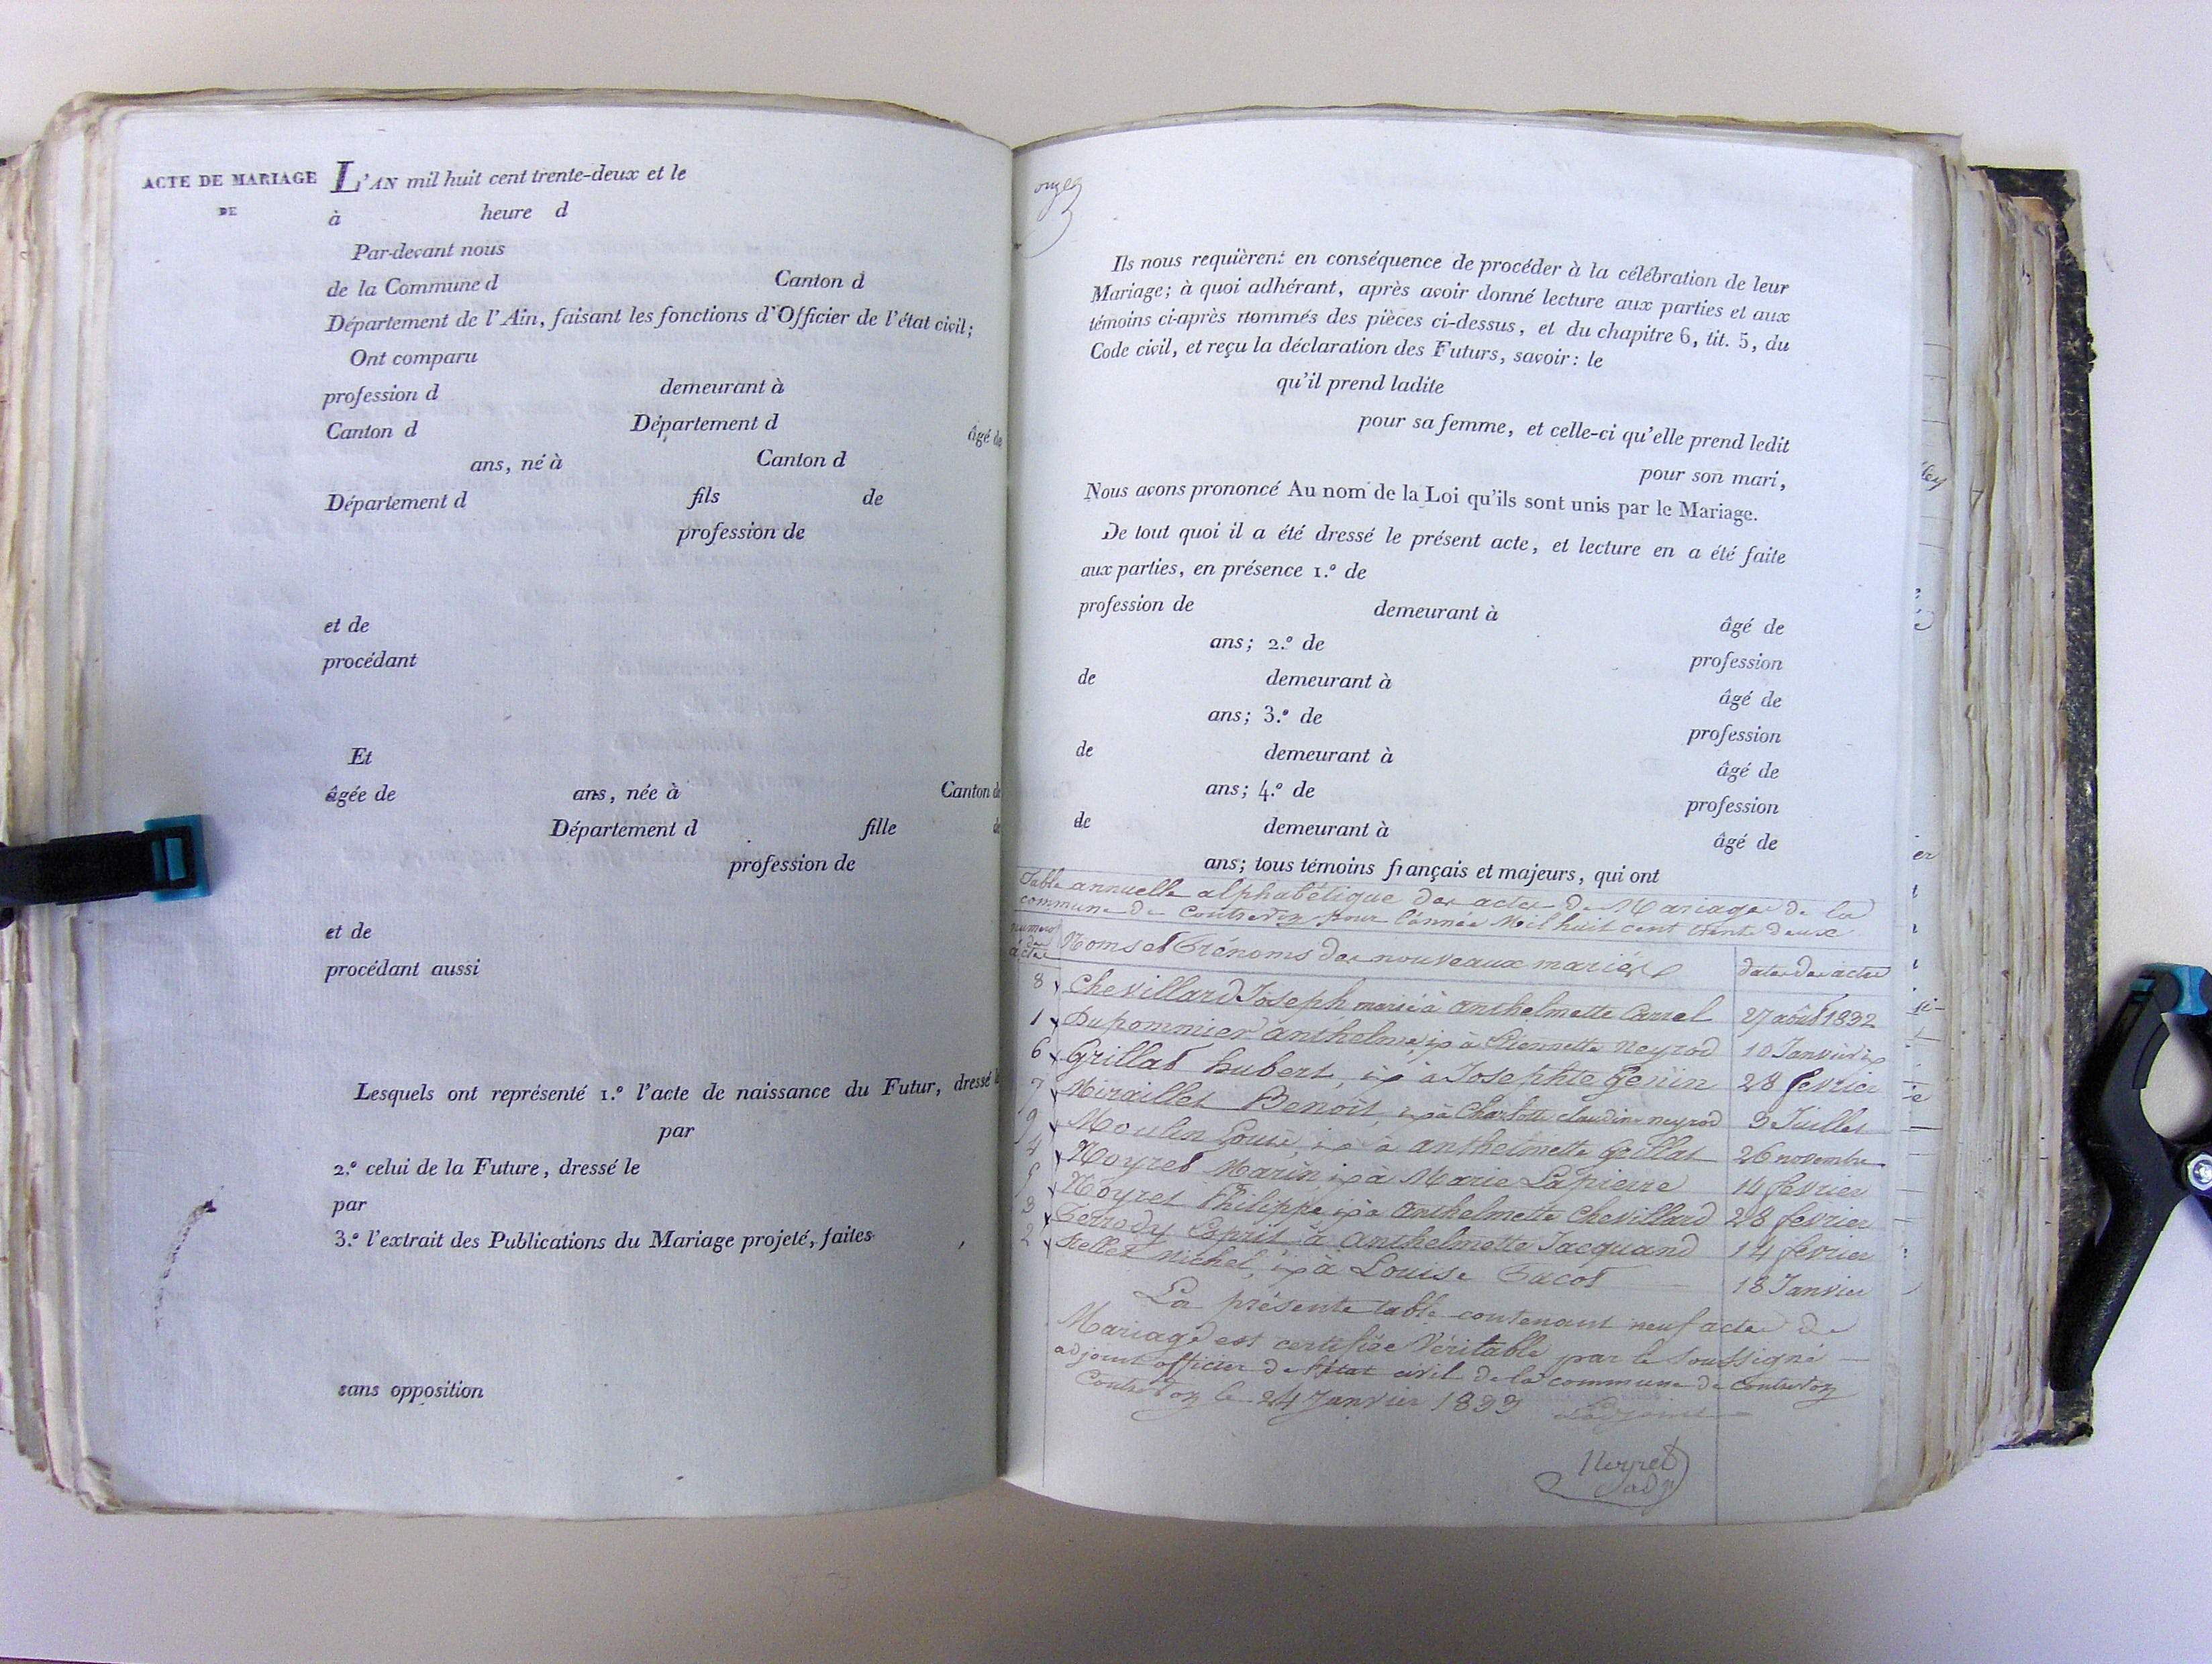 ACTE DE MARIAGE
DE
L'AN mil huit cent trente-deux et le
à heure d
Par-devant nous
de la Commune d Canton d
Département de l'Ain, faisant les fonctions d'Officier de l'état civil;
Ont comparu
profession d demeurant à
Canton d Département d âgé de
ans, né à Canton d
Département d fils de
profession de
et de
procédant
Et
âgée de ans, née à Canton de
Département d fille de
profession de
et de
procédant aussi
Lesquels ont représenté 1.º l'acte de naissance du Futur, dressé le
par
2.º celui de la Future, dressé le
par
3.º l'extrait des Publications du Mariage projeté, faites ,
sans opposition
Ils nous requièrent en conséquence de procéder à la célébration de leur
Mariage; à quoi adhérant, après avoir donné lecture aux parties et aux
témoins ci-après nommés des pièces ci-dessus, et du chapitre 6, tit. 5, du
Code civil, et reçu la déclaration des Futurs, savoir: le
qu'il prend ladite
pour sa femme, et celle-ci qu'elle prend ledit
pour son mari,
Nous avons prononcé Au nom de la Loi qu'ils sont unis par le Mariage.
De tout quoi il a été dressé le présent acte, et lecture en a été faite
aux parties, en présence 1.º de
profession de demeurant à âgé de
ans; 2.º de profession
de demeurant à âgé de
ans; 3.º de profession
de demeurant à âgé de
ans; 4.º de profession
de demeurant à âgé de
ans; tous témoins français et majeurs, qui ont
Table annuelle alphabétique des actes de Mariage de la
commune de Contrevoz pour l'année Mil huit cent trente deux
numeros des actes Noms et Prénoms des nouveaux mariés dates des actes
8 Chevillard Joseph marié à anthelmette Carrel 27 août 1832
1 Dupommier anthelme, id à Etiennette Neyrod 10 Janvier id
6 Grillat hubert, id à Josephte Genin 28 fevrier
7 Miraillet Benoît, id à Charlotte claudine neyrod 9 Juillet
9 Moulin Louis, id à anthelmette Grillat 26 novembre
4 Noyret Marin id à Marie Lapierre 14 fevrier
5 Noyret Philippe id à anthelmette Chevillard 28 fevrier
3 Perrody Esprit à anthelmette Jacquand 14 fevrier
2 Michel, id à Louise Pacot 18 Janvier
La présente table contenant neuf actes de
Mariage est certifiée Véritable par le Soussigné
adjoint officier de l'état civil de la commune de Contrevoz
Contrevoz le 24 Janvier 1833 L'adjoint
Neyret
adj